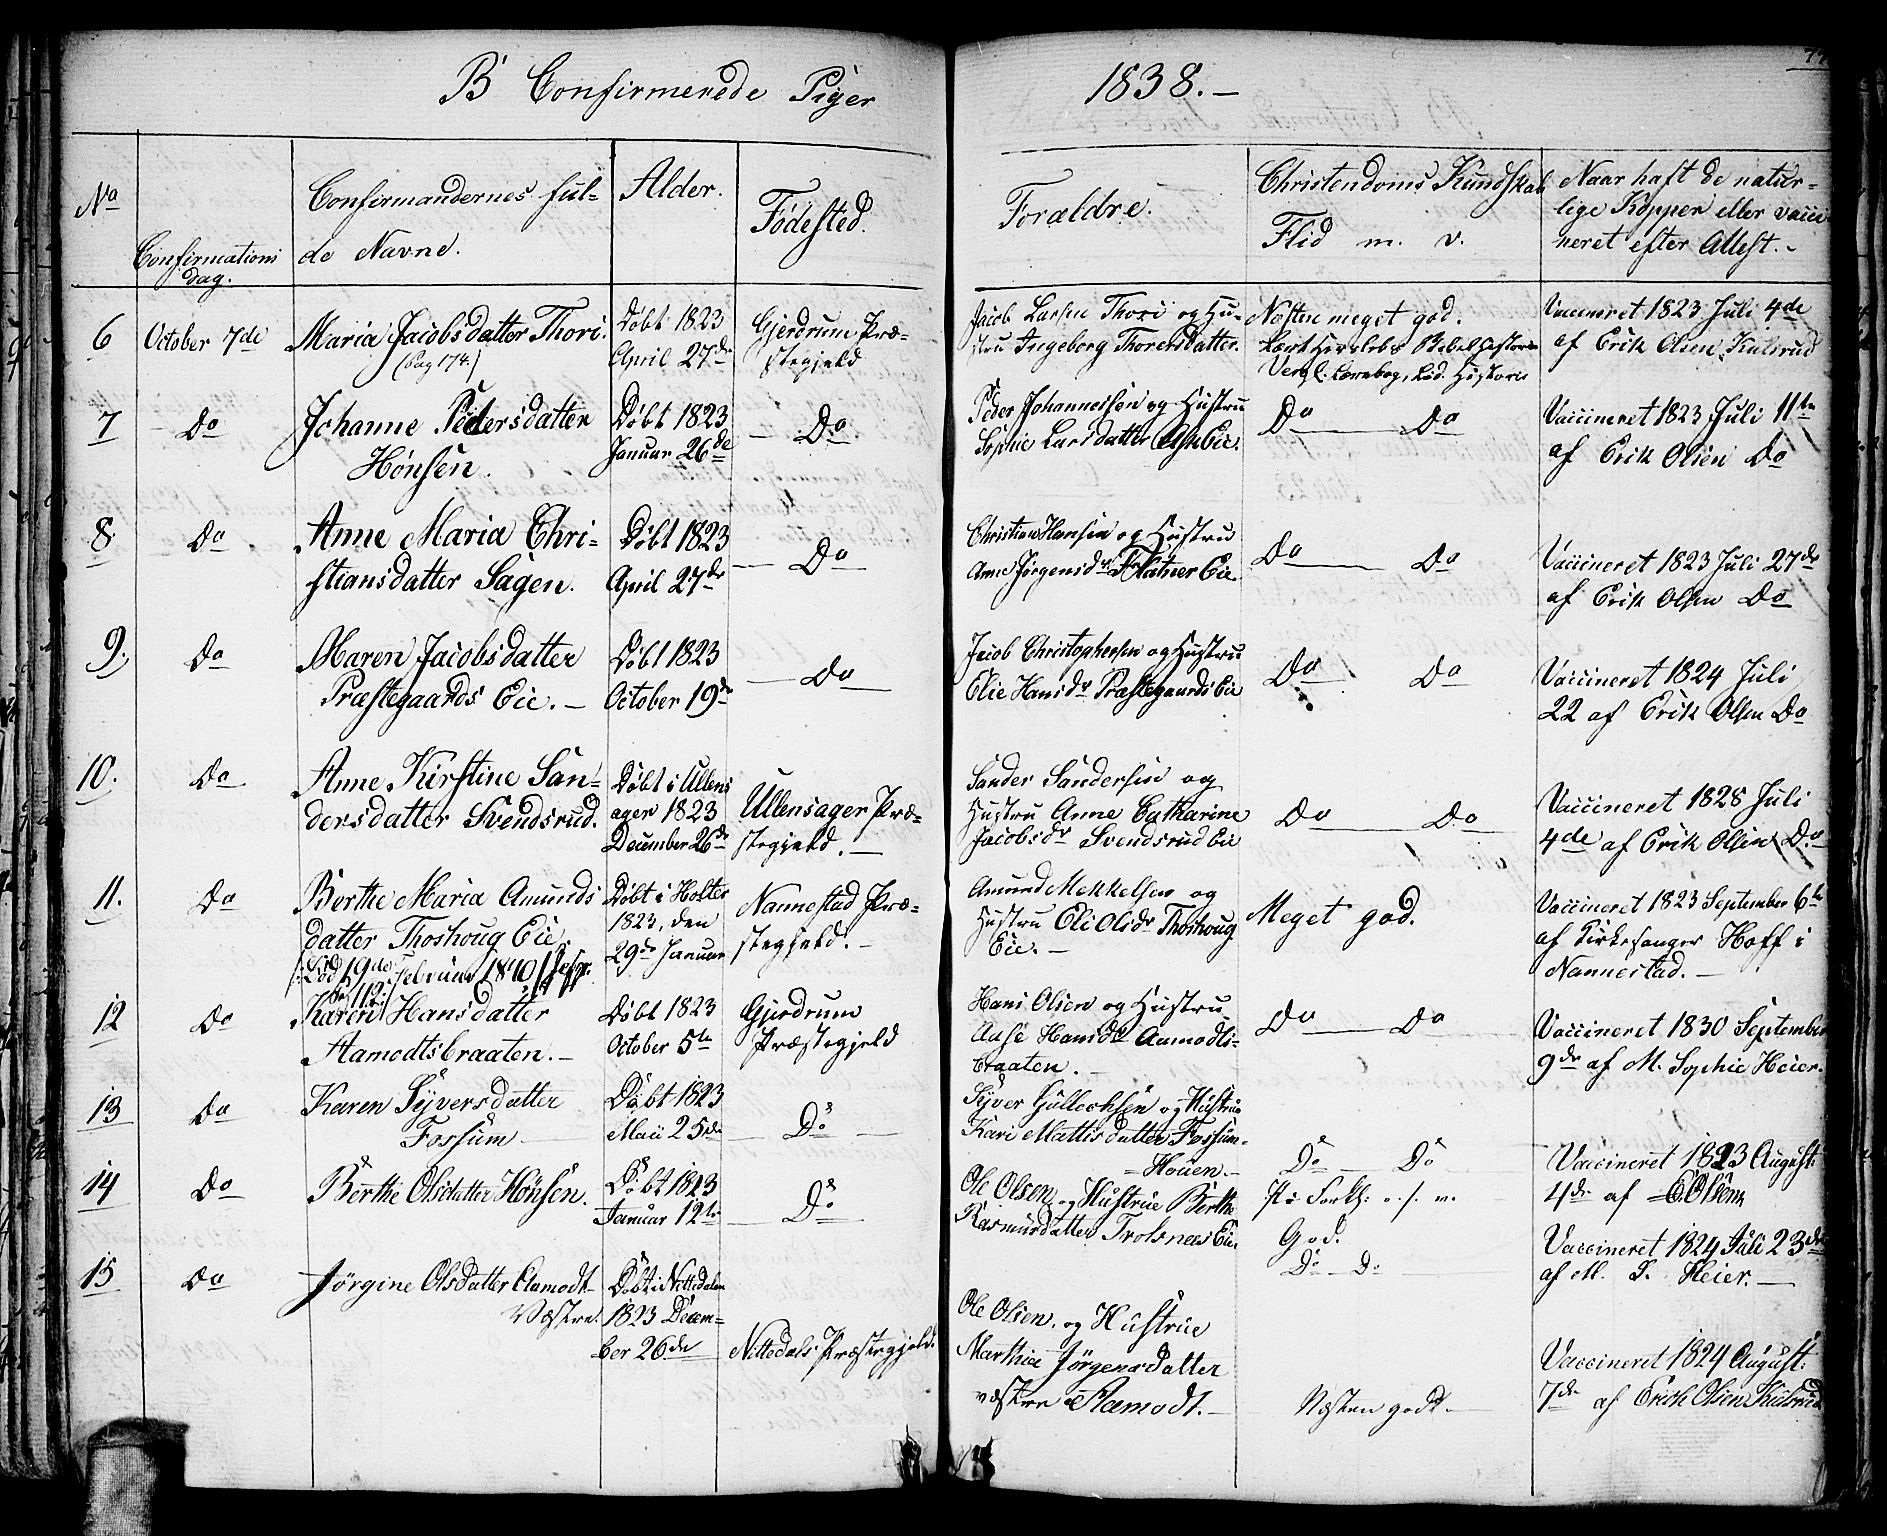 B Confirmerede Piger 1838.-
No
Confirmations
dag.
Confirmandernes ful-
de Navne.
Alder.
Fødested.
Forældre.
Christendoms Kundskab
Flid m. v.
Naar haft de natur-
lige Kopper eller vacci
neret efter Attest.-
6 October 7de
Maria Jacobsdatter Thori.
(Pag 174.)
Døbt 1823
April 27de
Gjerdrum Præ-
stegjeld
Jacob Larsen Thori og Hu-
stru Ingeborg Thorersdatter.
Næsten meget god.
Lært Herslebs Bibel historie
Vergl. Lærebog, Lid. Historie
Vaccineret 1823 Juli 4de
af Erik Olsen Kulsrud
7 Do
Johanne Pedersdatter
Hønsen.
Døbt 1823
Januar 26de
Do
Peder Johannessen og Hustru
Sophie Larsdatter Eie.
Do Do
Vaccineret 1823 Juli 11te
af Erik Olsen Do
8 Do
Anne Maria Chri-
stiansdatter Sagen.
Døbt 1823
April 27de
Do
Christian Hansen og Hustru
Anne Jørgensdr Flatner Eie
Do Do
Vaccineret 1823 Juli 27de
af Erik Olsen Do
9. Do
Maren Jacobsdatter
Præstegaards Eie.-
Døbt 1823
October 19de
Do
Jacob Christophersen og Hustru
Elie Hansdr Præstegaards Eie
Do Do
Vaccineret 1824 Juli
22 af Erik Olsen Do
10. Do
Anne Kirstine San-
dersdatter Svendsrud.
Døbt i Ullens
ager 1823
December 26de
Ullensager Præ-
stegjeld.-
Sander Sandersen og
Hustru Anne Catharine
Jacobsdr Svendsrud Eie
Do Do
Vaccineret 1828 Juli
4de af Erik Olsen Do-
11. Do
Berthe Maria Amunds
datter Thoshoug Eie
19de Februar 1840
Døbt i Holter
1823, den
29de Januar
Nannestad Præ-
stegjeld.-
Amund Mekkelsen og
Hustru Eli Olsdr Thoshoug
Eie.-
Meget god.
Vaccineret 1823 September 6te
af Kirkesanger Hoff i
Nannestad.-
12 Do
Karen Hansdatter
Aamodtsbraaten.-
Døbt 1823
October 5te
Gjerdrum
Præstegjeld
Hans Olsen og Hustru
Aase Hansdr Aamodts-
braaten.-
Do Do
Vaccineret 1830 September
9de af M. Sophie Heier.
13 Do
Karen Syversdatter
Fossum
Døbt 1823
Maii 25de
Do
Syver Gullechsen og Hustrue
Kari Mattisdatter Fossum-
Houen.-
Do Do
Vaccineret 1823 August
4de af E. Olsen
14 Do
Berthe Olsdatter Hønsen.
Døbt 1823
Januar 12te
Do
Ole Olsen og Hustrue Berthe
Rasmusdatter Trolsnes Eie
God.
Do - Do
Vaccineret 1824 Juli 23de
af M. S. Heier.-
15 Do
Jørgine Olsdatter Aamodt
Væstre.
Døbt i Nittedalen
1823 Decem-
ber 26de
Nittedals Præstegjeld.
Ole Olsen og Hustrue
Marthia Jørgensdatter
væstre Aamodt.-
Næsten godt.-
Vaccineret 1824 August
7de af Erich Olsen Kulsrud